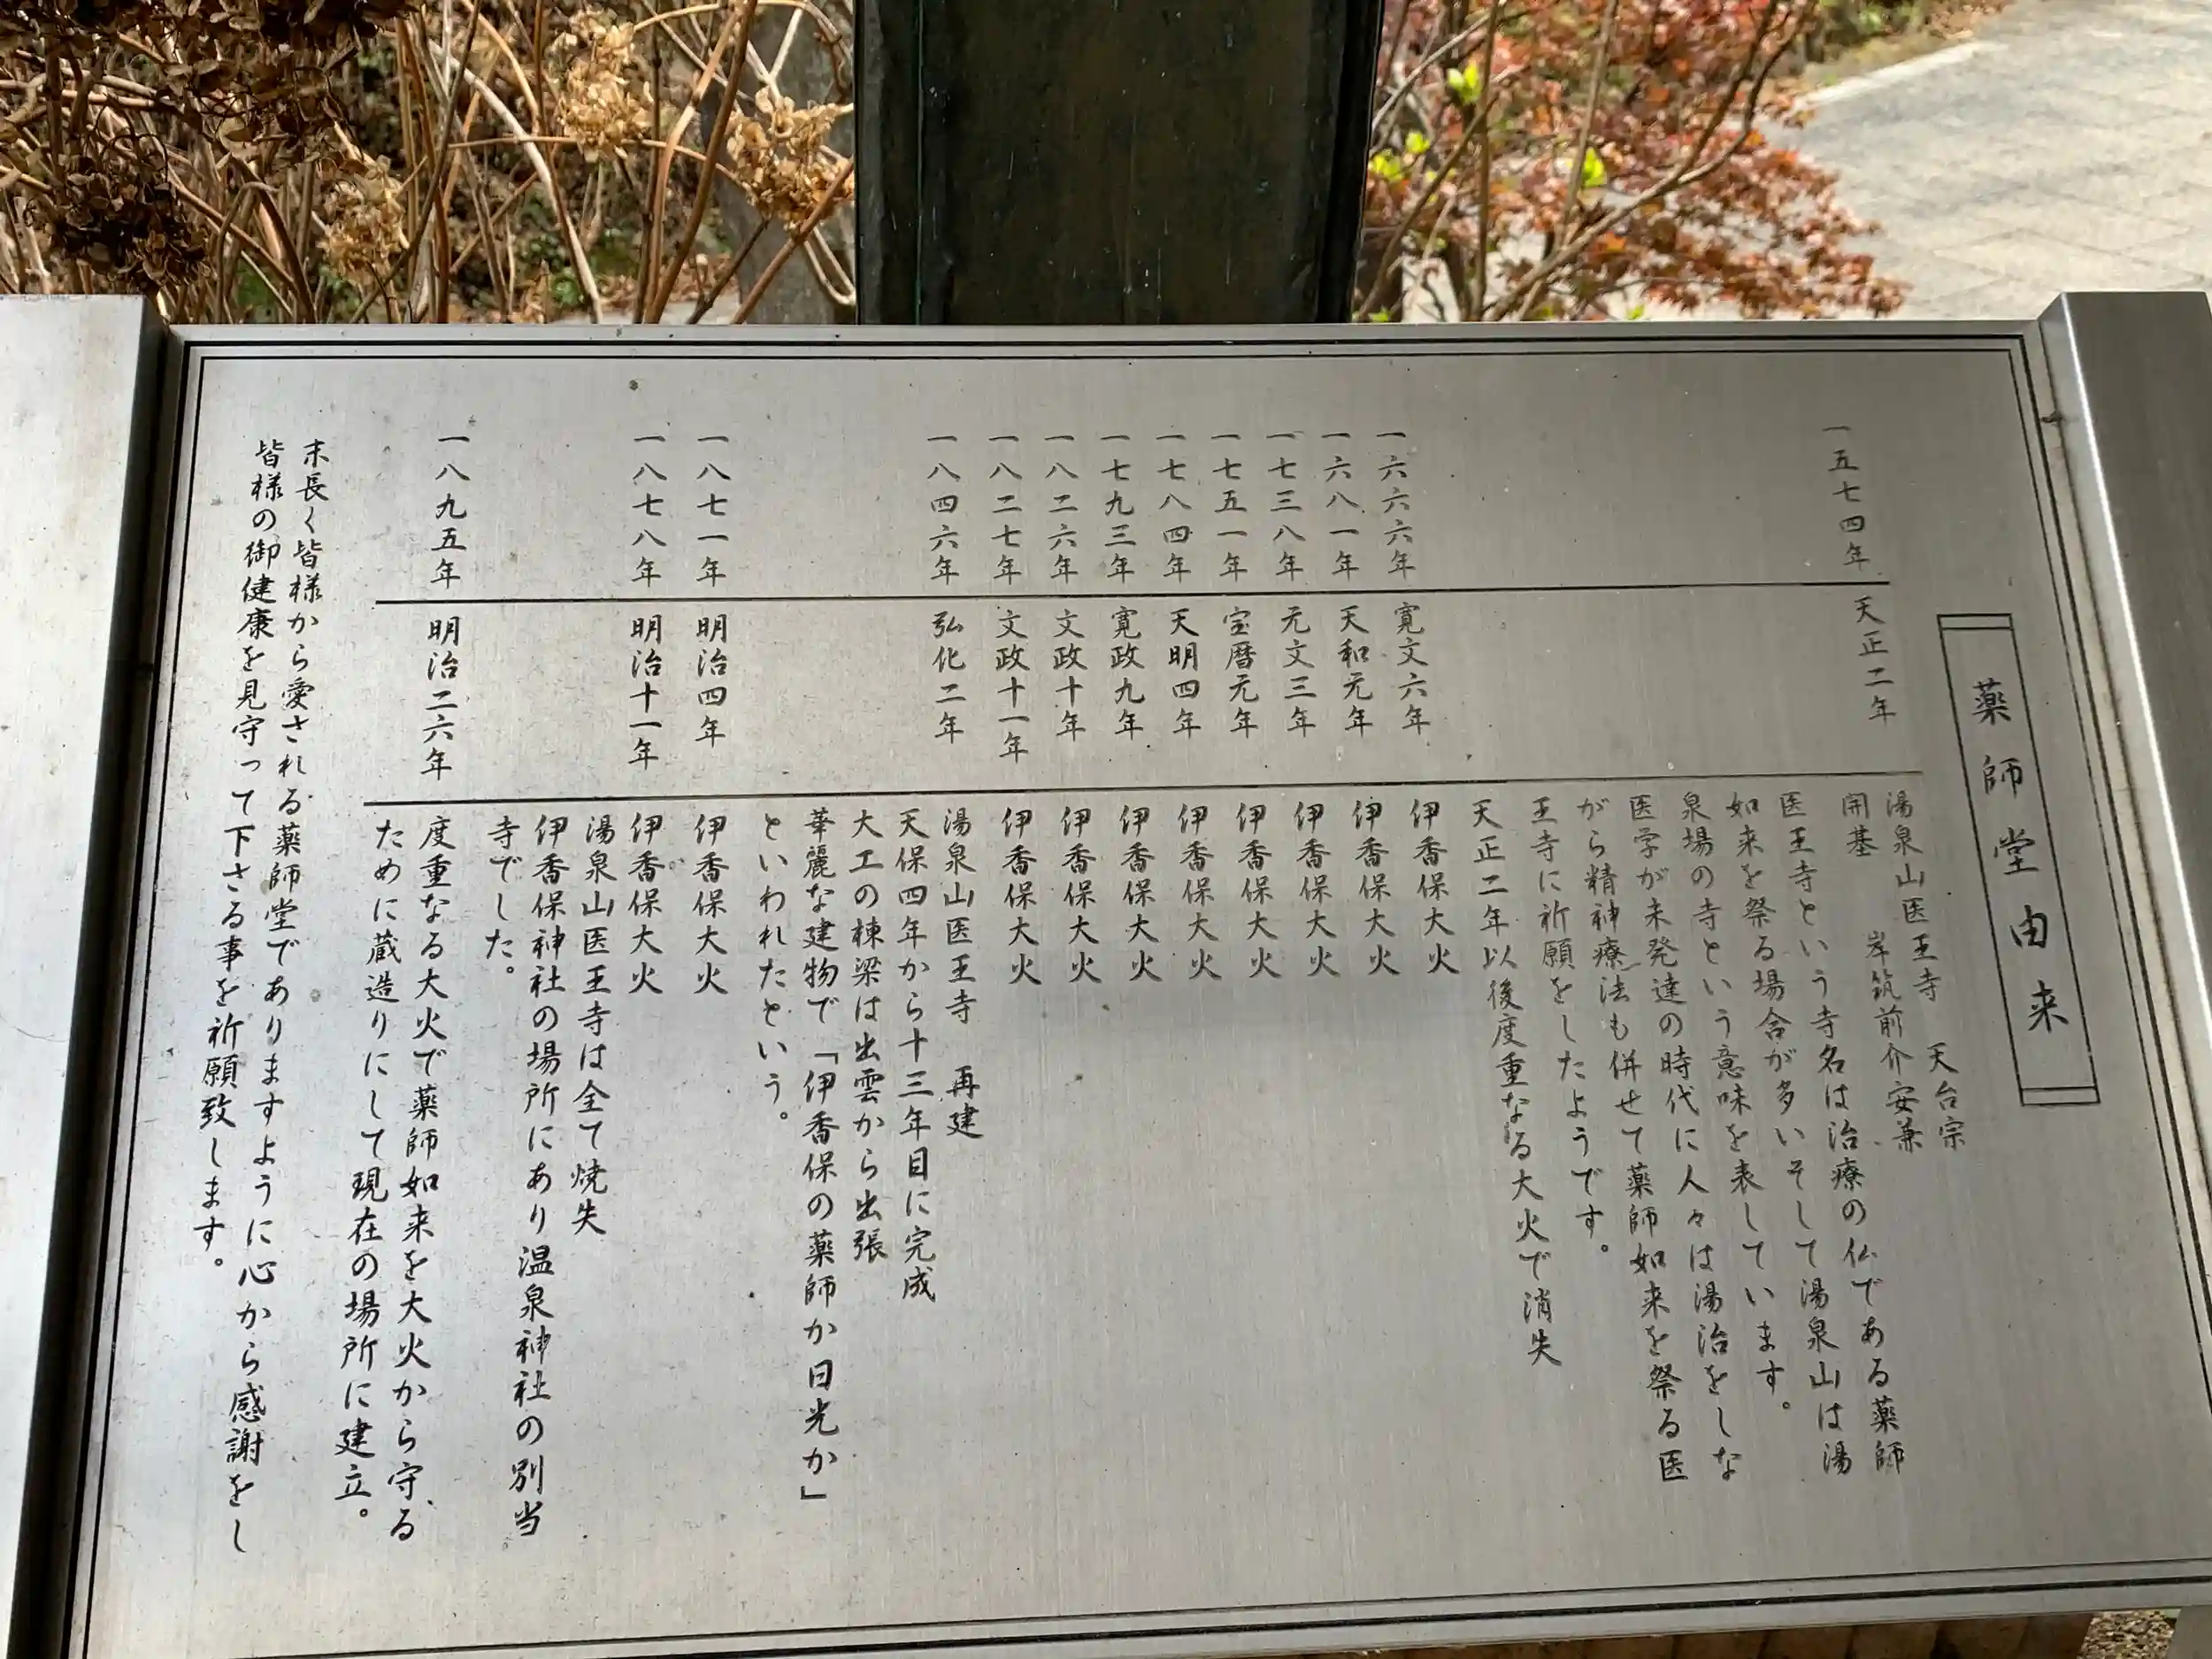 薬師堂由来
一五七四年 天正二年 湯泉山医王寺 天台宗
開基 岸筑前介安兼
医王寺という寺名は治療の仏である薬師
如来を祭る場合が多いそして湯泉山は湯
泉場の寺という意味を表しています。
医学が未発達の時代に人々は湯治をしな
がら精神療法も併せて薬師如来を祭る医
王寺に祈願をしたようです。
天正二年以後度重なる大火で消失
一六六六年 寛文六年 伊香保大火
一六八一年 天和元年 伊香保大火
一七三八年 元文三年 伊香保大火
一七五一年 宝暦元年 伊香保大火
一七八四年 天明四年 伊香保大火
一七九三年 寛政九年 伊香保大火
一八二六年 文政十年 伊香保大火
一八二七年 文政十一年 伊香保大火
一八四六年 弘化二年 湯泉山医王寺 再建
天保四年から十三年目に完成
大工の棟梁は出雲から出張
華麗な建物で「伊香保の薬師か日光か」
といわれたという。
一八七一年 明治四年 伊香保大火
一八七八年 明治十一年 伊香保大火
湯泉山医王寺は全て焼失
伊香保神社の場所にあり温泉神社の別当
寺でした。
一八九五年 明治二六年 度重なる大火で薬師如来を大火から守る
ために蔵造りにして現在の場所に建立。
末長く皆様から愛される薬師堂でありますように心から感謝をし
皆様の御健康を見守って下さる事を祈願致します。